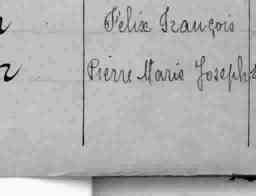 Félix François
Pierre Marie Joseph